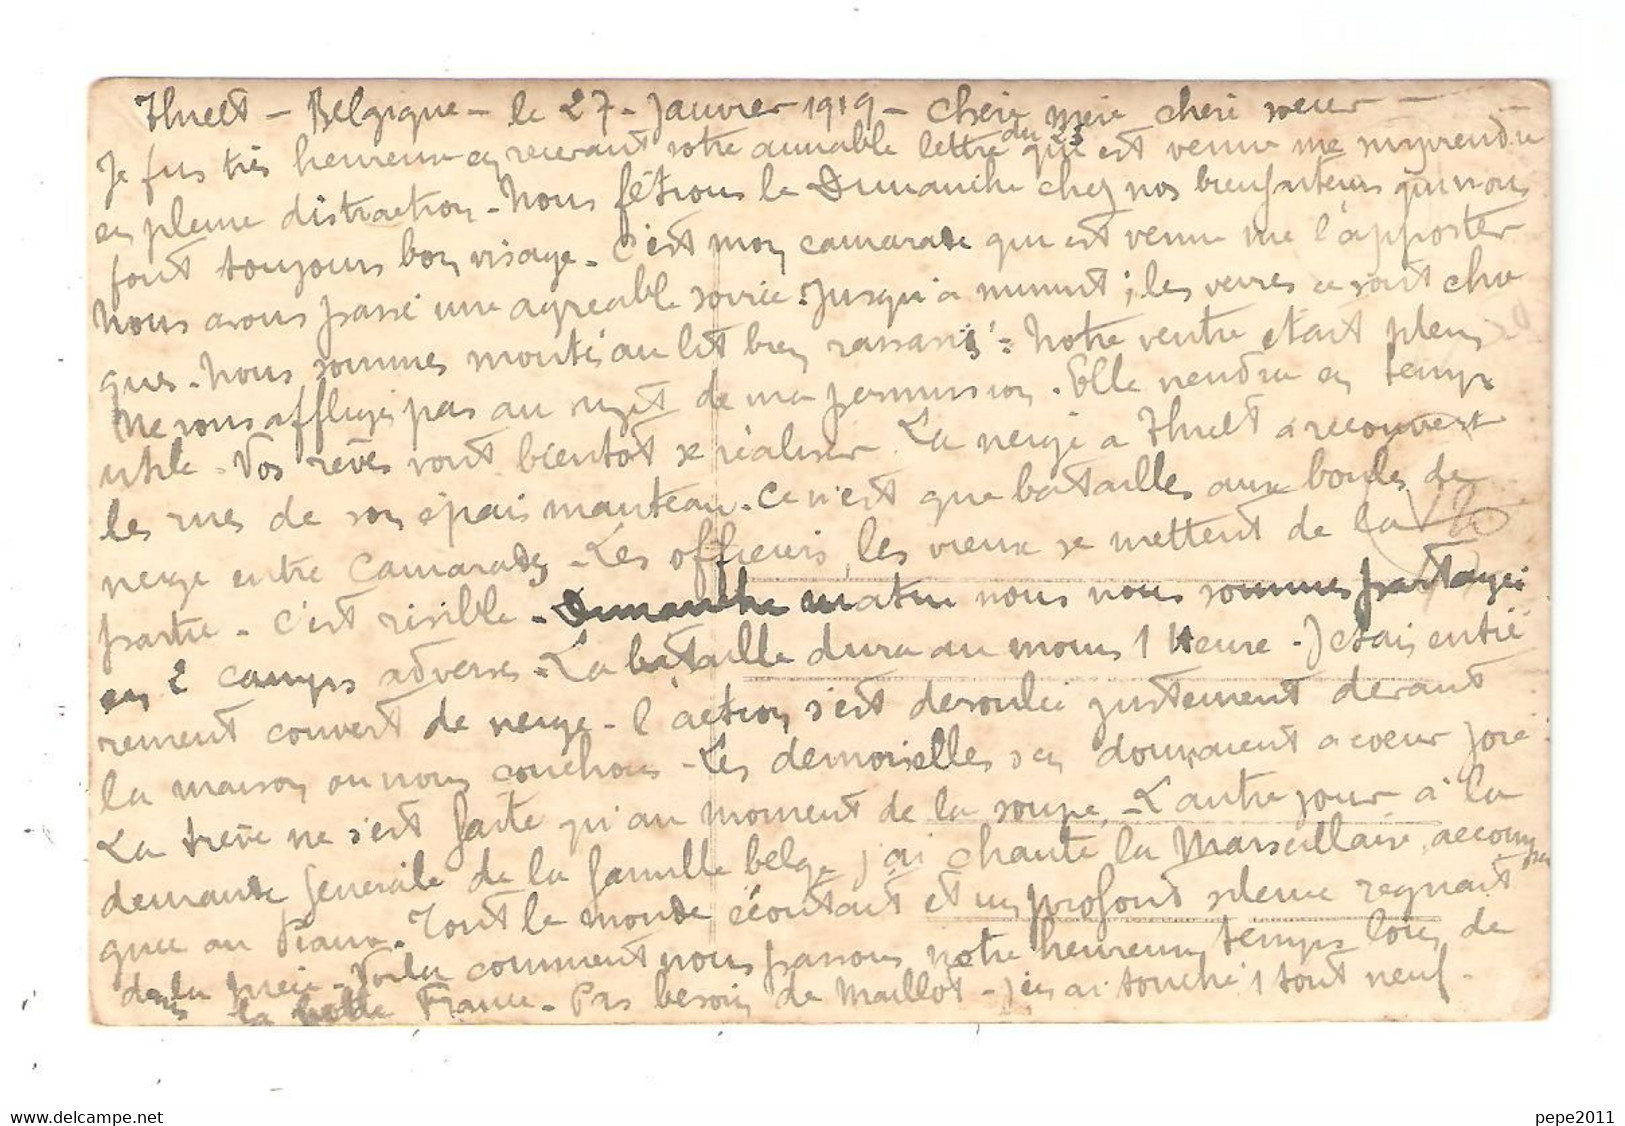 Thielt - Belgique - le 27 - Janvier 1919 - Cherie mère cheri soeur -
Je fus très heureux en recevant votre aimable lettre du 23 qui est venue me surprendre
en pleine distraction - Nous fêtions le Dimanche chez nos bienfaiteurs qui nous
font toujours bon visage - C'est mon camarade qui est venu me l'apporter
Nous avons passé une agreable soirée. Jusqu'a minuit ; les verres ce sont cho
qués - Nous sommes montés au lit bien rassasiés - Notre ventre etait plein
Ne vous affligé pas au sujet de ma permission - Elle viendra en temps
utile - Vos rêves vont bientôt se réaliser. La neige a Thielt a recouvert
les rues de son épais manteau - Ce n'est que batailles aux boules de
neige entre camarades - Les officiers, les vieux se mettent de la
partie - C'est risible - Dimanche matin nous nous sommes partagés
en 2 camps adverses - La bataille dura au moins 1 Heure - J'etais entiè
rement couvert de neige - l'action s'est deroulée justement devant
la maison ou nous couchons - Les demoiselles s'en donnaient a coeur joie
La trêve ne s'est faite qu'au moment de la soupe - L'autre jour à la
demande generale de la famille belge j'ai chanté la Marseillaise accompa
gnée au Piano - Tout le monde écoutait et un profond silence regnait
dans la pièce - Voila comment nous passons notre heureux temps loin de
la belle France - Pas besoin de Maillot - j'en ai touché 1 tout neuf -
www.delcampe.net
pepe2011